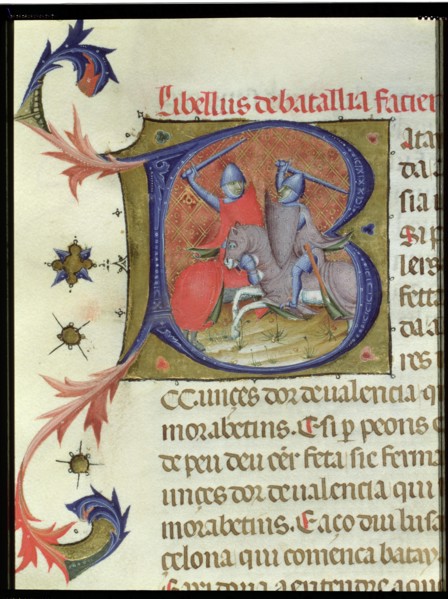 Libellus de batallia facien
B
Ata
da l
sia
Si p
lers
fett
da a
res
CC. unçes dor de ualencia q
morabetins. E si p peons
de peu deu eer feta sie ferma
unces dor de ualencia qui
morabetins. E aço diu lus
celona qui comença batay